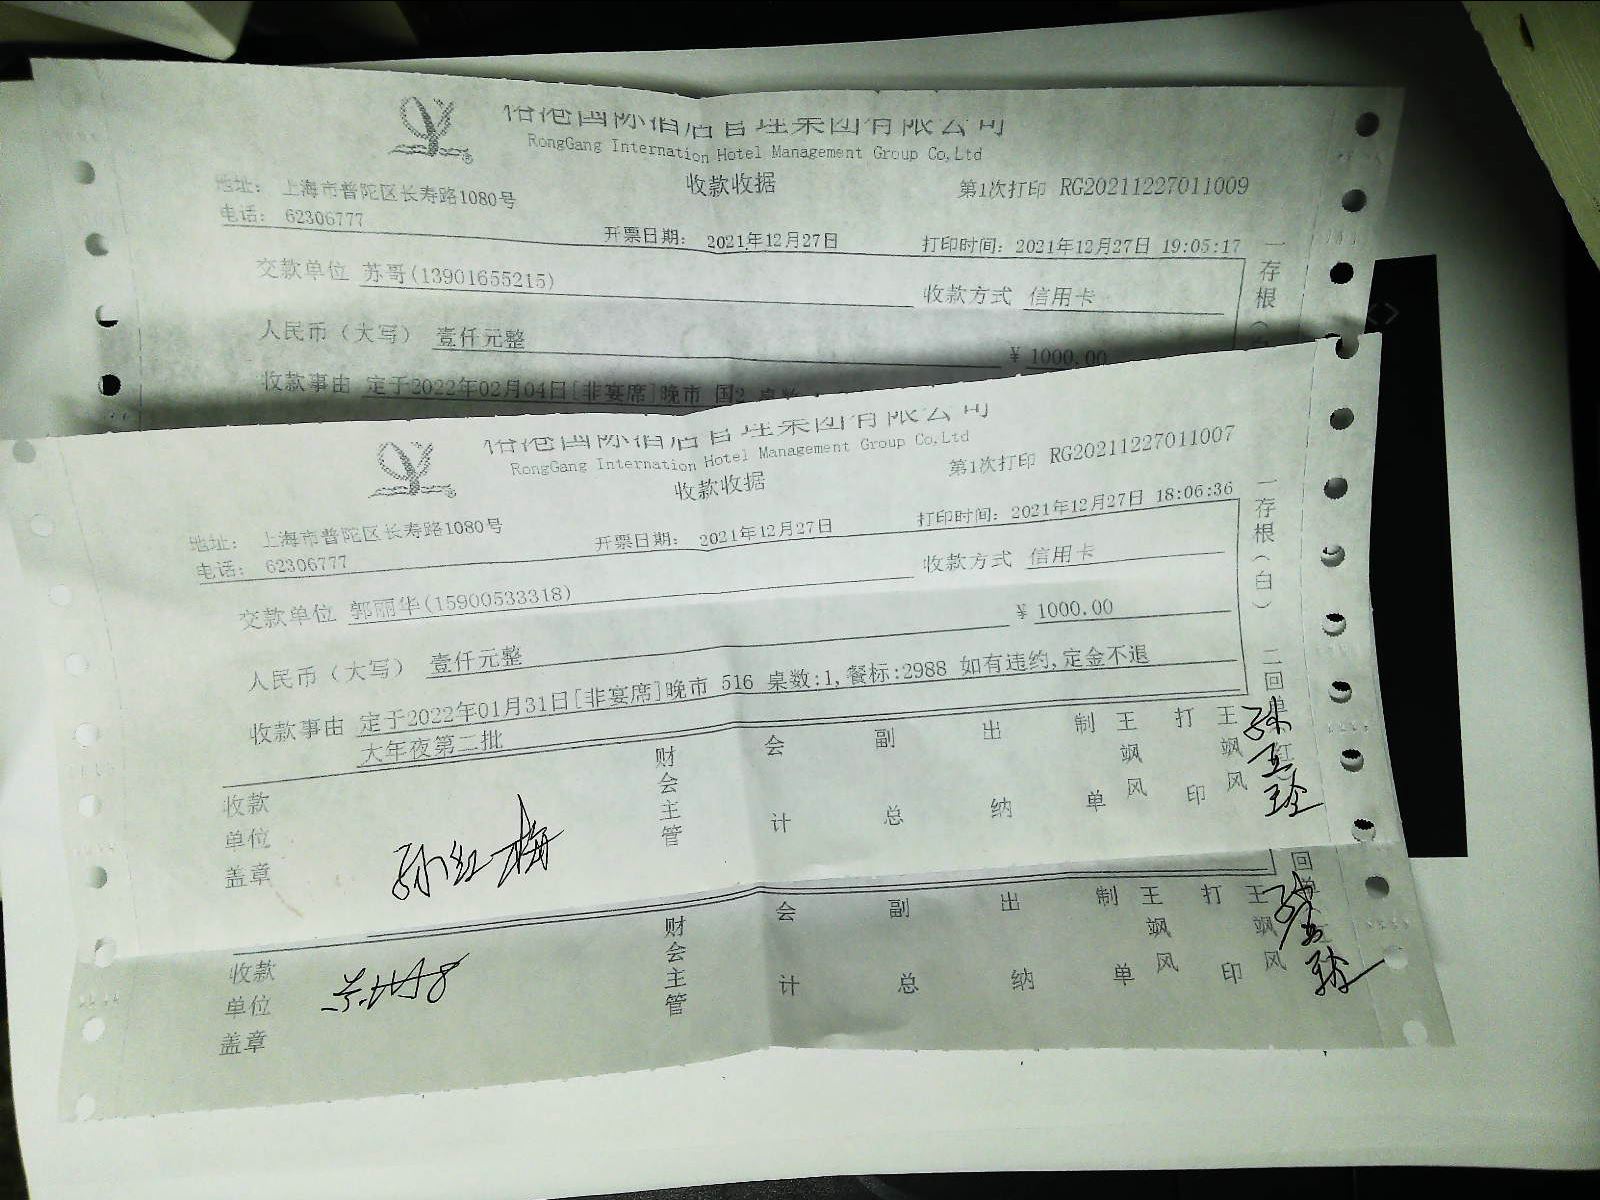 国际酒店管理集团有限公司
RongGang Internation Hotel Management Group Co,Ltd
收款收据
第1次打印 RG20211227011009
地址： 上海市普陀区长寿路1080号
电话： 62306777
开票日期： 2021年12月27日
打印时间： 2021年12月27日 19:05:17
交款单位 苏哥(13901655215)
收款方式 信用卡
人民币（大写） 壹仟元整
¥ 1000.00
收款事由 定于2022年02月04日[非宴席]晚市 国2 桌数
一存根（白
国际酒店管理集团有限公司
RongGang Internation Hotel Management Group Co,Ltd
收款收据
第1次打印 RG20211227011007
地址： 上海市普陀区长寿路1080号
电话： 62306777
开票日期： 2021年12月27日
打印时间： 2021年12月27日 18:06:36
交款单位 郭丽华(15900533318)
收款方式 信用卡
人民币（大写） 壹仟元整
¥ 1000.00
收款事由 定于2022年01月31日[非宴席]晚市 516 桌数:1,餐标:2988 如有违约,定金不退
大年夜第二批
一存根（白） 二回单
收款单位盖章
孙红梅
财会主管
会计
副总
出纳
制单
王飒风
打印
王飒风
收款单位盖章
财会主管
会计
副总
出纳
制单
王飒风
打印
王飒风
回单